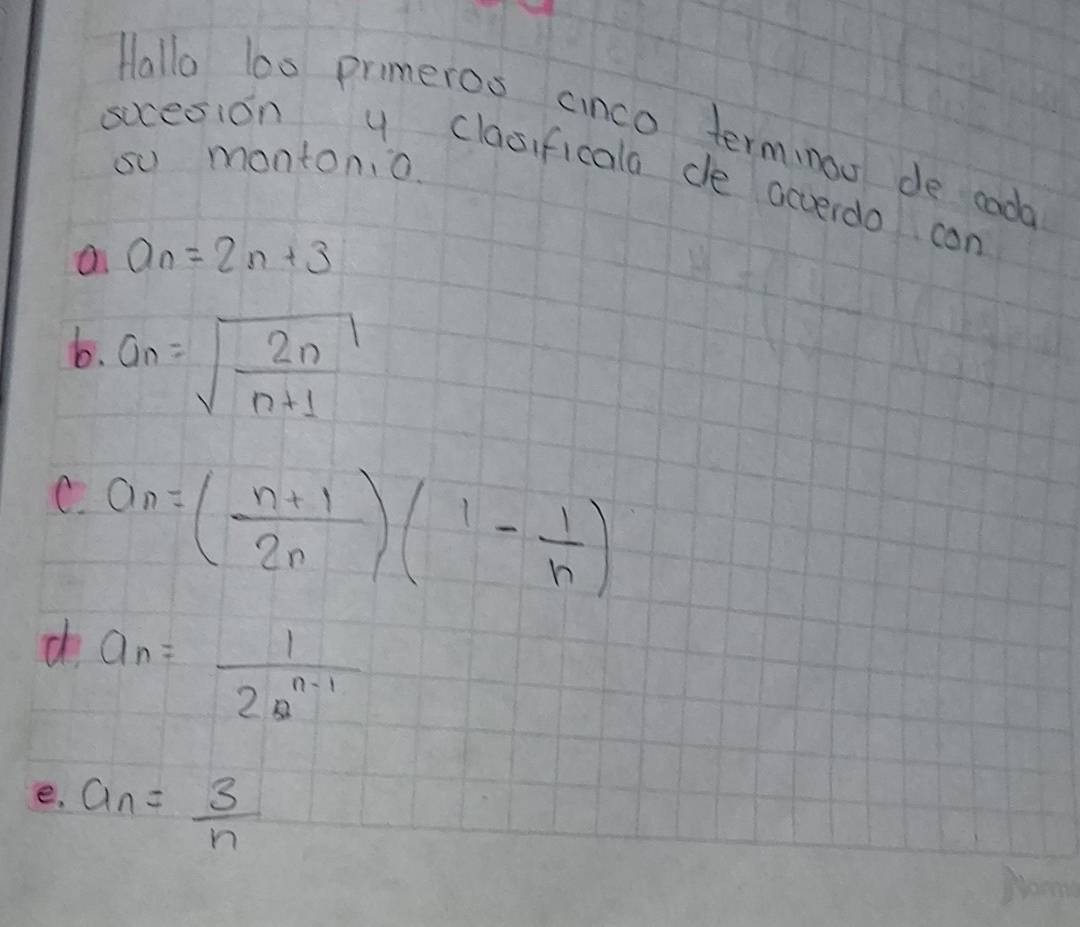 Hallo los primeros cinco terminos de cada
sucesión y clasificala de acuerdo con
su montonia.
a. an = 2n + 3
b. an = √(2n / n+1)
c. an = (n+1 / 2n)(1 - 1/n)
d. an = 1 / 2^n-1
e. an = 3/n
Norma